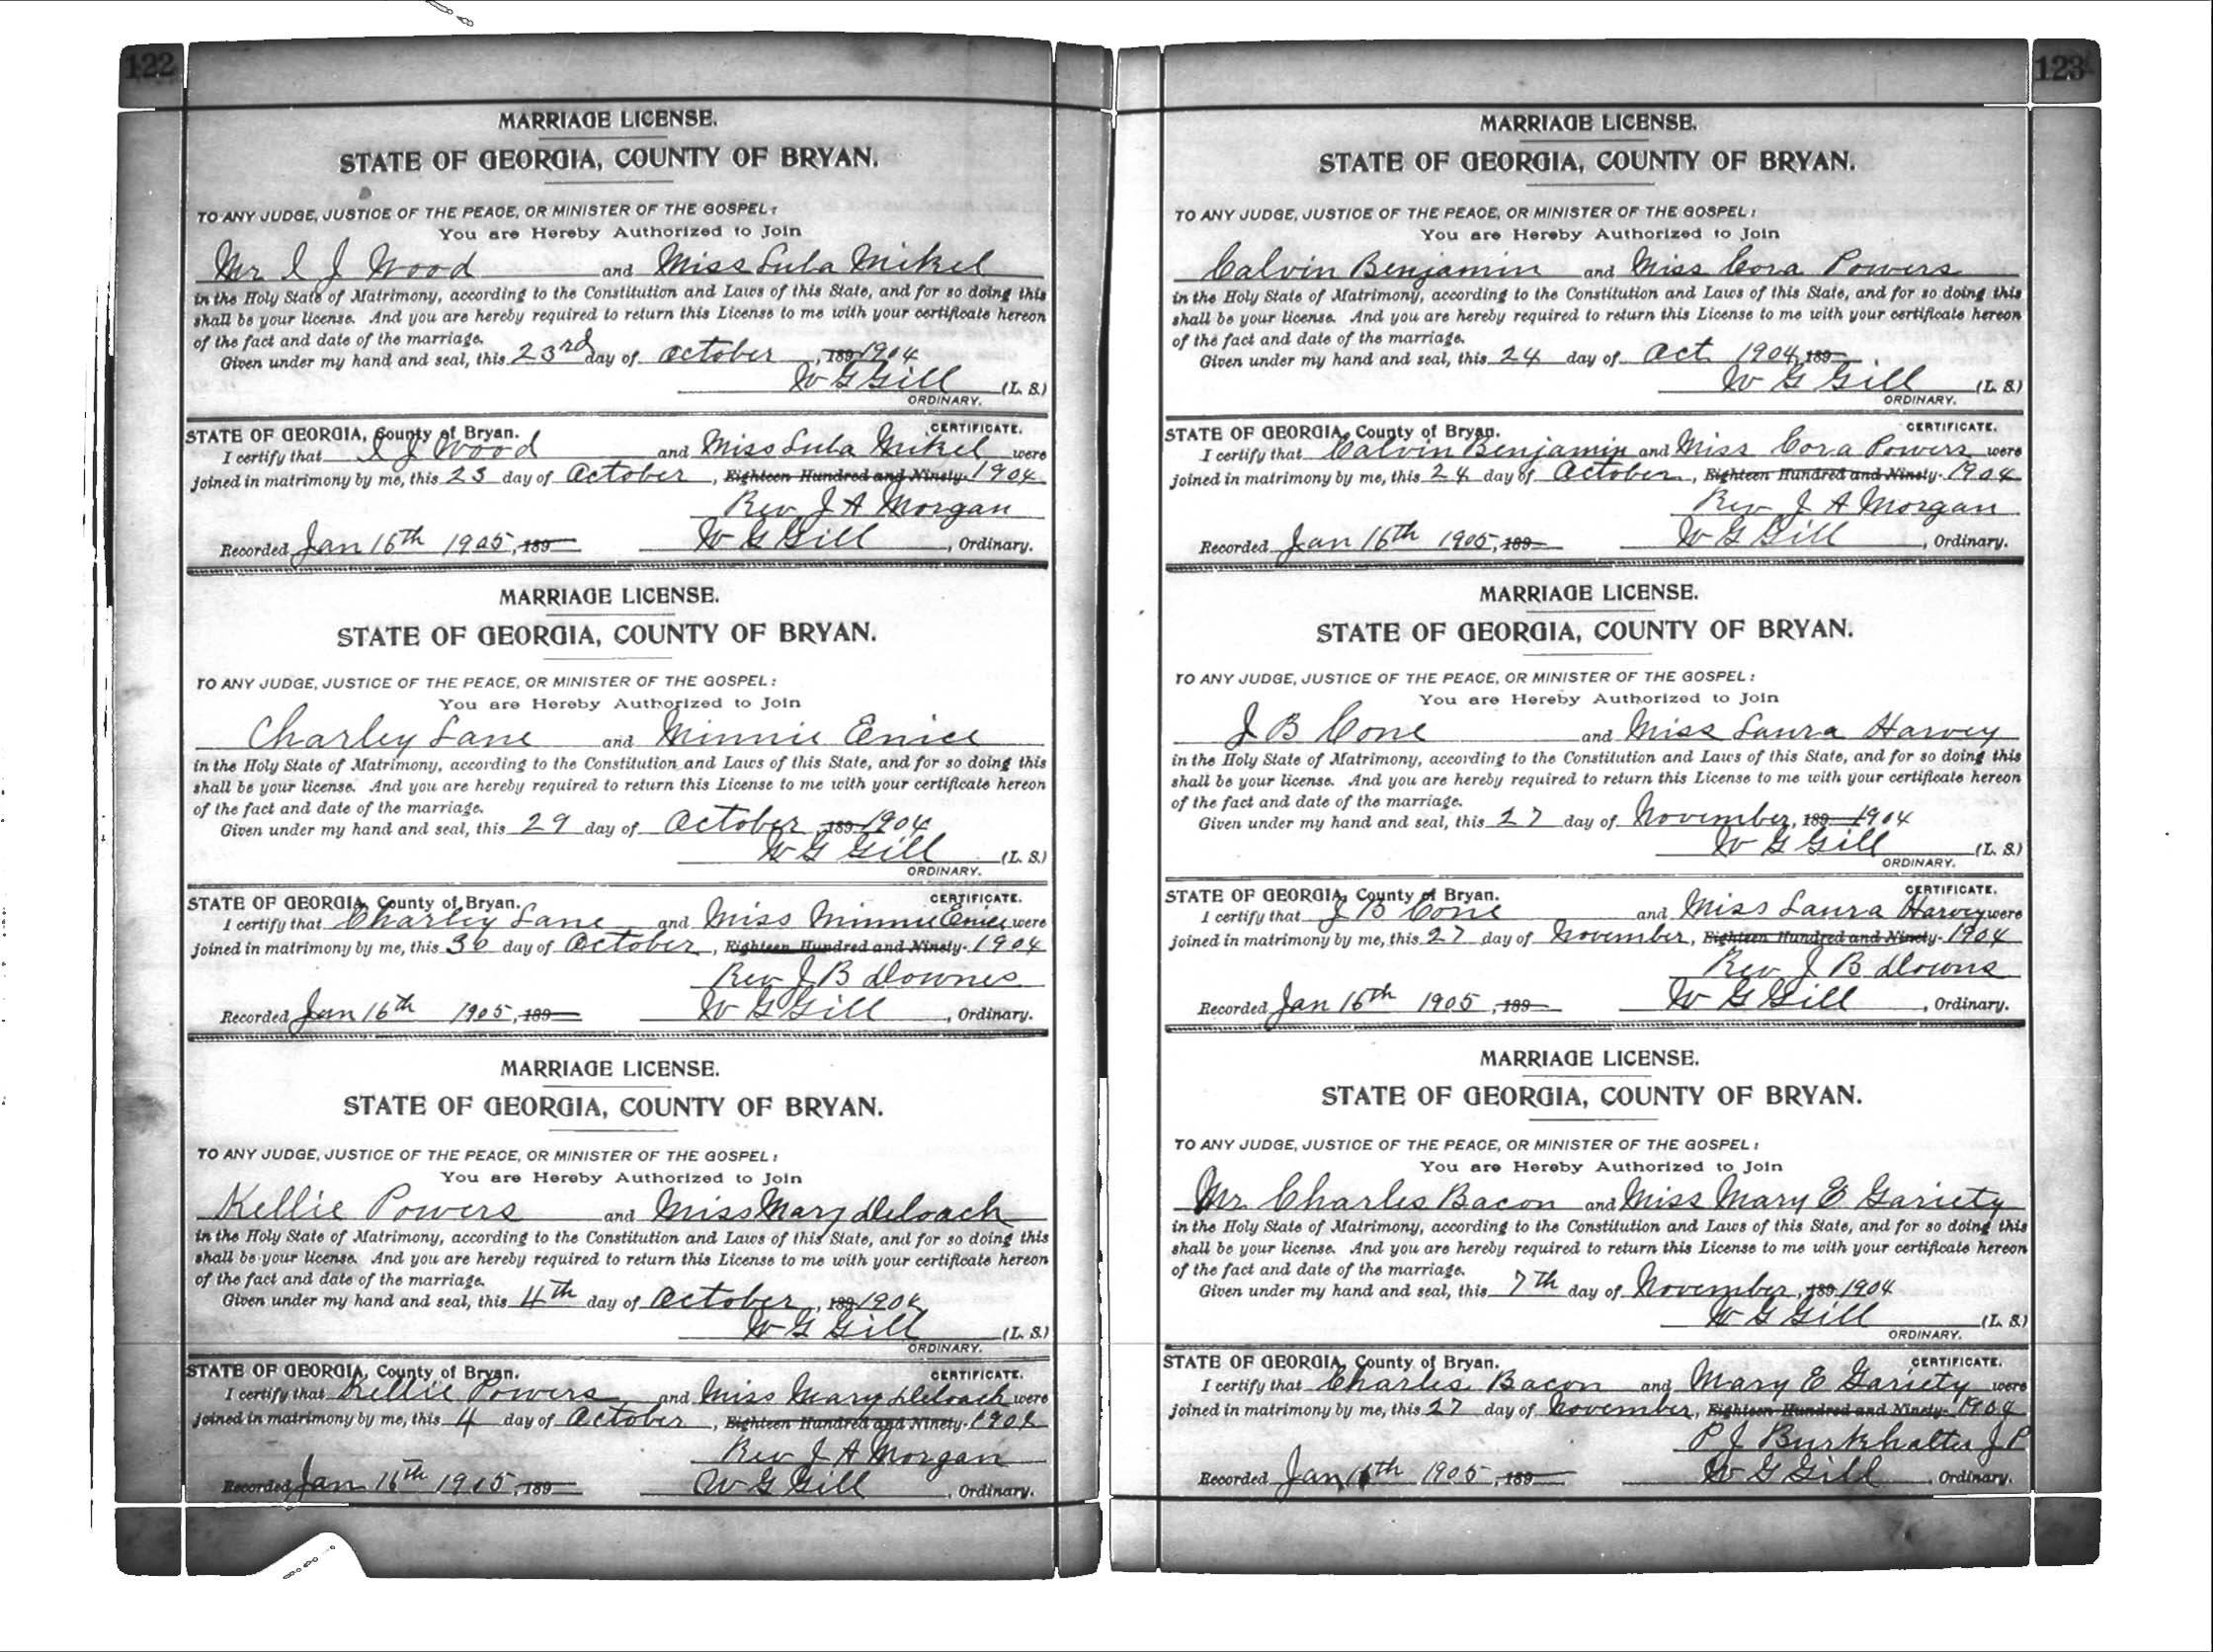 122
MARRIAGE LICENSE.
STATE OF GEORGIA, COUNTY OF BRYAN.
TO ANY JUDGE, JUSTICE OF THE PEACE, OR MINISTER OF THE GOSPEL:
You are Hereby Authorized to Join
Mr I J Wood and Miss Lula Mikel
in the Holy State of Matrimony, according to the Constitution and Laws of this State, and for so doing this
shall be your license. And you are hereby required to return this License to me with your certificate hereon
of the fact and date of the marriage.
Given under my hand and seal, this 23rd day of October, 189 1904
W G Gill (L. S.)
ORDINARY.
STATE OF GEORGIA, County of Bryan. CERTIFICATE.
I certify that I J Wood and Miss Lula Mikel were
joined in matrimony by me, this 23 day of October, Eighteen Hundred and Ninety- 1904
Rev J A Morgan
Recorded Jan 16th 1905, 189 W G Gill, Ordinary.
MARRIAGE LICENSE.
STATE OF GEORGIA, COUNTY OF BRYAN.
TO ANY JUDGE, JUSTICE OF THE PEACE, OR MINISTER OF THE GOSPEL:
You are Hereby Authorized to Join
Charley Lane and Minnie Enice
in the Holy State of Matrimony, according to the Constitution and Laws of this State, and for so doing this
shall be your license. And you are hereby required to return this License to me with your certificate hereon
of the fact and date of the marriage.
Given under my hand and seal, this 29 day of October, 189 1904
W G Gill (L. S.)
ORDINARY.
STATE OF GEORGIA, County of Bryan. CERTIFICATE.
I certify that Charley Lane and Miss Minnie Enice were
joined in matrimony by me, this 30 day of October, Eighteen Hundred and Ninety- 1904
Rev J B Downes
Recorded Jan 16th 1905, 189 W G Gill, Ordinary.
MARRIAGE LICENSE.
STATE OF GEORGIA, COUNTY OF BRYAN.
TO ANY JUDGE, JUSTICE OF THE PEACE, OR MINISTER OF THE GOSPEL:
You are Hereby Authorized to Join
Kellie Powers and Miss Mary Deloach
in the Holy State of Matrimony, according to the Constitution and Laws of this State, and for so doing this
shall be your license. And you are hereby required to return this License to me with your certificate hereon
of the fact and date of the marriage.
Given under my hand and seal, this 4th day of October, 189 1904
W G Gill (L. S.)
ORDINARY.
STATE OF GEORGIA, County of Bryan. CERTIFICATE.
I certify that Kellie Powers and Miss Mary Deloach were
joined in matrimony by me, this 4 day of October, Eighteen Hundred and Ninety- 1904
Rev J A Morgan
Recorded Jan 16th 1905, 189 W G Gill, Ordinary.
123
MARRIAGE LICENSE.
STATE OF GEORGIA, COUNTY OF BRYAN.
TO ANY JUDGE, JUSTICE OF THE PEACE, OR MINISTER OF THE GOSPEL:
You are Hereby Authorized to Join
Calvin Benjamin and Miss Cora Powers
in the Holy State of Matrimony, according to the Constitution and Laws of this State, and for so doing this
shall be your license. And you are hereby required to return this License to me with your certificate hereon
of the fact and date of the marriage.
Given under my hand and seal, this 24 day of Oct 1904, 189
W G Gill (L. S.)
ORDINARY.
STATE OF GEORGIA, County of Bryan. CERTIFICATE.
I certify that Calvin Benjamin and Miss Cora Powers were
joined in matrimony by me, this 24 day of October, Eighteen Hundred and Ninety- 1904
Rev J A Morgan
Recorded Jan 16th 1905, 189 W G Gill, Ordinary.
MARRIAGE LICENSE.
STATE OF GEORGIA, COUNTY OF BRYAN.
TO ANY JUDGE, JUSTICE OF THE PEACE, OR MINISTER OF THE GOSPEL:
You are Hereby Authorized to Join
J B Cone and Miss Laura Harvey
in the Holy State of Matrimony, according to the Constitution and Laws of this State, and for so doing this
shall be your license. And you are hereby required to return this License to me with your certificate hereon
of the fact and date of the marriage.
Given under my hand and seal, this 27 day of November, 189 1904
W G Gill (L. S.)
ORDINARY.
STATE OF GEORGIA, County of Bryan. CERTIFICATE.
I certify that J B Cone and Miss Laura Harvey were
joined in matrimony by me, this 27 day of November, Eighteen Hundred and Ninety- 1904
Rev J B Downs
Recorded Jan 16th 1905, 189 W G Gill, Ordinary.
MARRIAGE LICENSE.
STATE OF GEORGIA, COUNTY OF BRYAN.
TO ANY JUDGE, JUSTICE OF THE PEACE, OR MINISTER OF THE GOSPEL:
You are Hereby Authorized to Join
Mr. Charles Bacon and Miss Mary E Gariety
in the Holy State of Matrimony, according to the Constitution and Laws of this State, and for so doing this
shall be your license. And you are hereby required to return this License to me with your certificate hereon
of the fact and date of the marriage.
Given under my hand and seal, this 7th day of November, 189 1904
W G Gill (L. S.)
ORDINARY.
STATE OF GEORGIA, County of Bryan. CERTIFICATE.
I certify that Charles Bacon and Mary E Gariety were
joined in matrimony by me, this 27 day of November, Eighteen Hundred and Ninety- 1904
P J Burkhalter J P
Recorded Jan 16th 1905, 189 W G Gill, Ordinary.